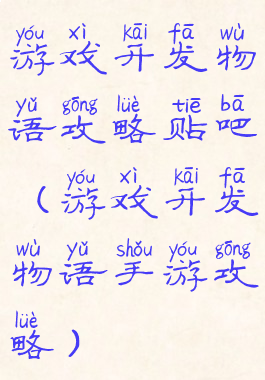 yóu xì kāi fā wù
游戏开发物
yǔ gōng lüè tiē bā
语攻略贴吧
yóu xì kāi fā
（游戏开发
wù yǔ shǒu yóu gōng
物语手游攻
lüè
略）